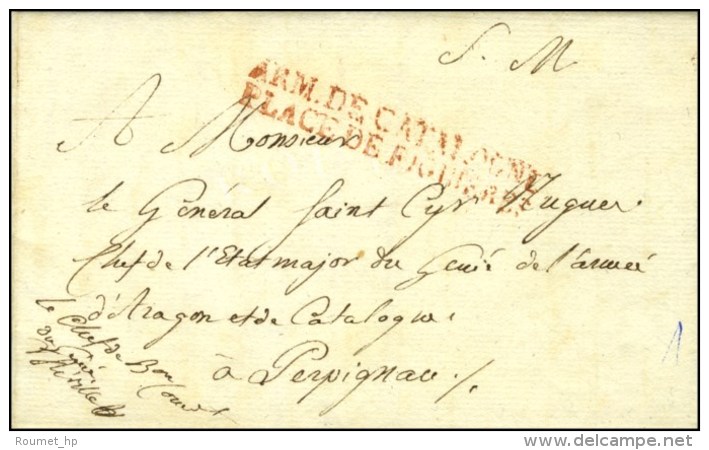 S. M
ARM. DE CATALOGNE
PLACE DE FIGUIERES
A Monsieur
le Général Saint Cyr Nugues
Chef de l'Etat major du Genié de l'armeé
d'Aragon et de Catalogne
à Perpignan ./.
le Chef de Bon Comdt
du Génie
1
Roumet_hp
www.delcampe.net